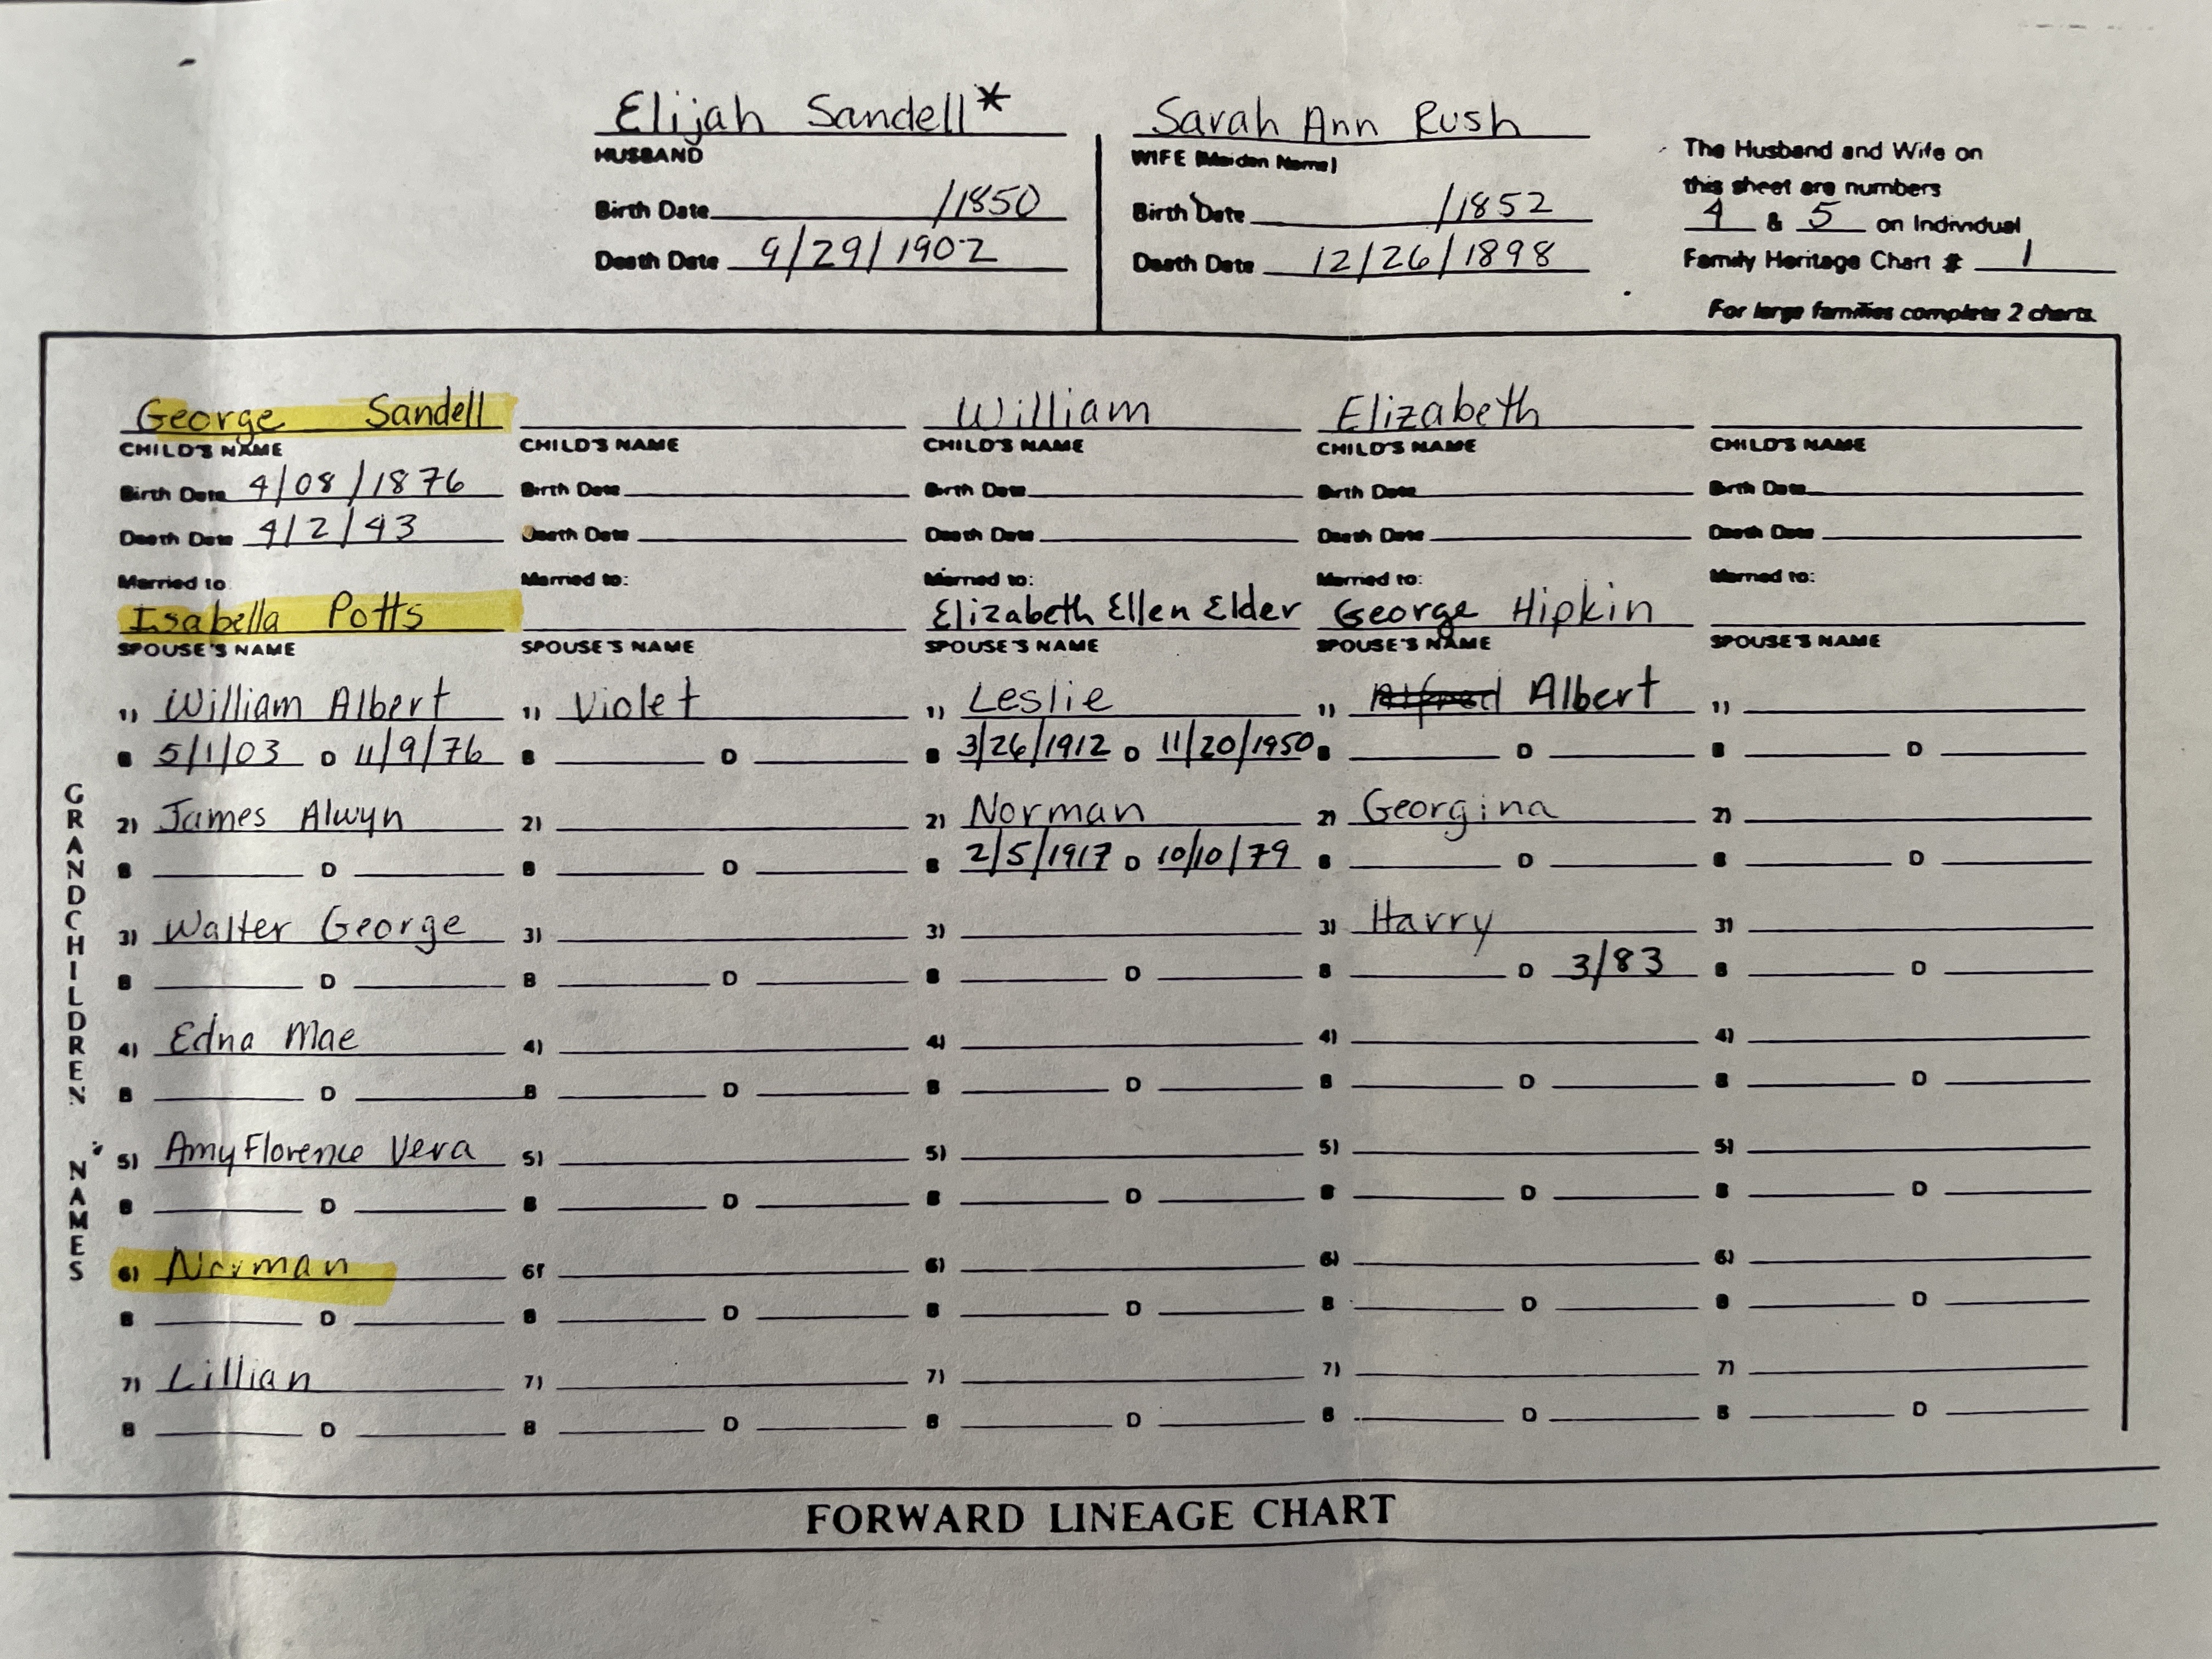 Elijah Sandell*
HUSBAND
Birth Date /1850
Death Date 9/29/1902
Sarah Ann Rush
WIFE (Maiden Name)
Birth Date /1852
Death Date 12/26/1898
The Husband and Wife on
this sheet are numbers
4 & 5 on Individual
Family Heritage Chart # 1
For large families complete 2 charts
George Sandell
CHILD'S NAME
Birth Date 4/08/1876
Death Date 4/2/43
Married to
Isabella Potts
SPOUSE'S NAME
GRANDCHILDREN NAMES
1) William Albert
B 5/1/03 D 11/9/76
2) James Alwyn
B D
3) Walter George
B D
4) Edna Mae
B D
5) Amy Florence Vera
B D
6) Norman
B D
7) Lillian
B D
CHILD'S NAME
Birth Date
Death Date
Married to:
SPOUSE'S NAME
1) Violet
B D
2)
B D
3)
B D
4)
B D
5)
B D
6)
B D
7)
B D
William
CHILD'S NAME
Birth Date
Death Date
Married to:
Elizabeth Ellen Elder
SPOUSE'S NAME
1) Leslie
B 3/26/1912 D 11/20/1950
2) Norman
B 2/5/1917 D 10/10/79
3)
B D
4)
B D
5)
B D
6)
B D
7)
B D
Elizabeth
CHILD'S NAME
Birth Date
Death Date
Married to:
George Hipkin
SPOUSE'S NAME
1) Albert
B D
2) Georgina
B D
3) Harry
B D 3/83
4)
B D
5)
B D
6)
B D
7)
B D
CHILD'S NAME
Birth Date
Death Date
Married to:
SPOUSE'S NAME
1)
B D
2)
B D
3)
B D
4)
B D
5)
B D
6)
B D
7)
B D
FORWARD LINEAGE CHART